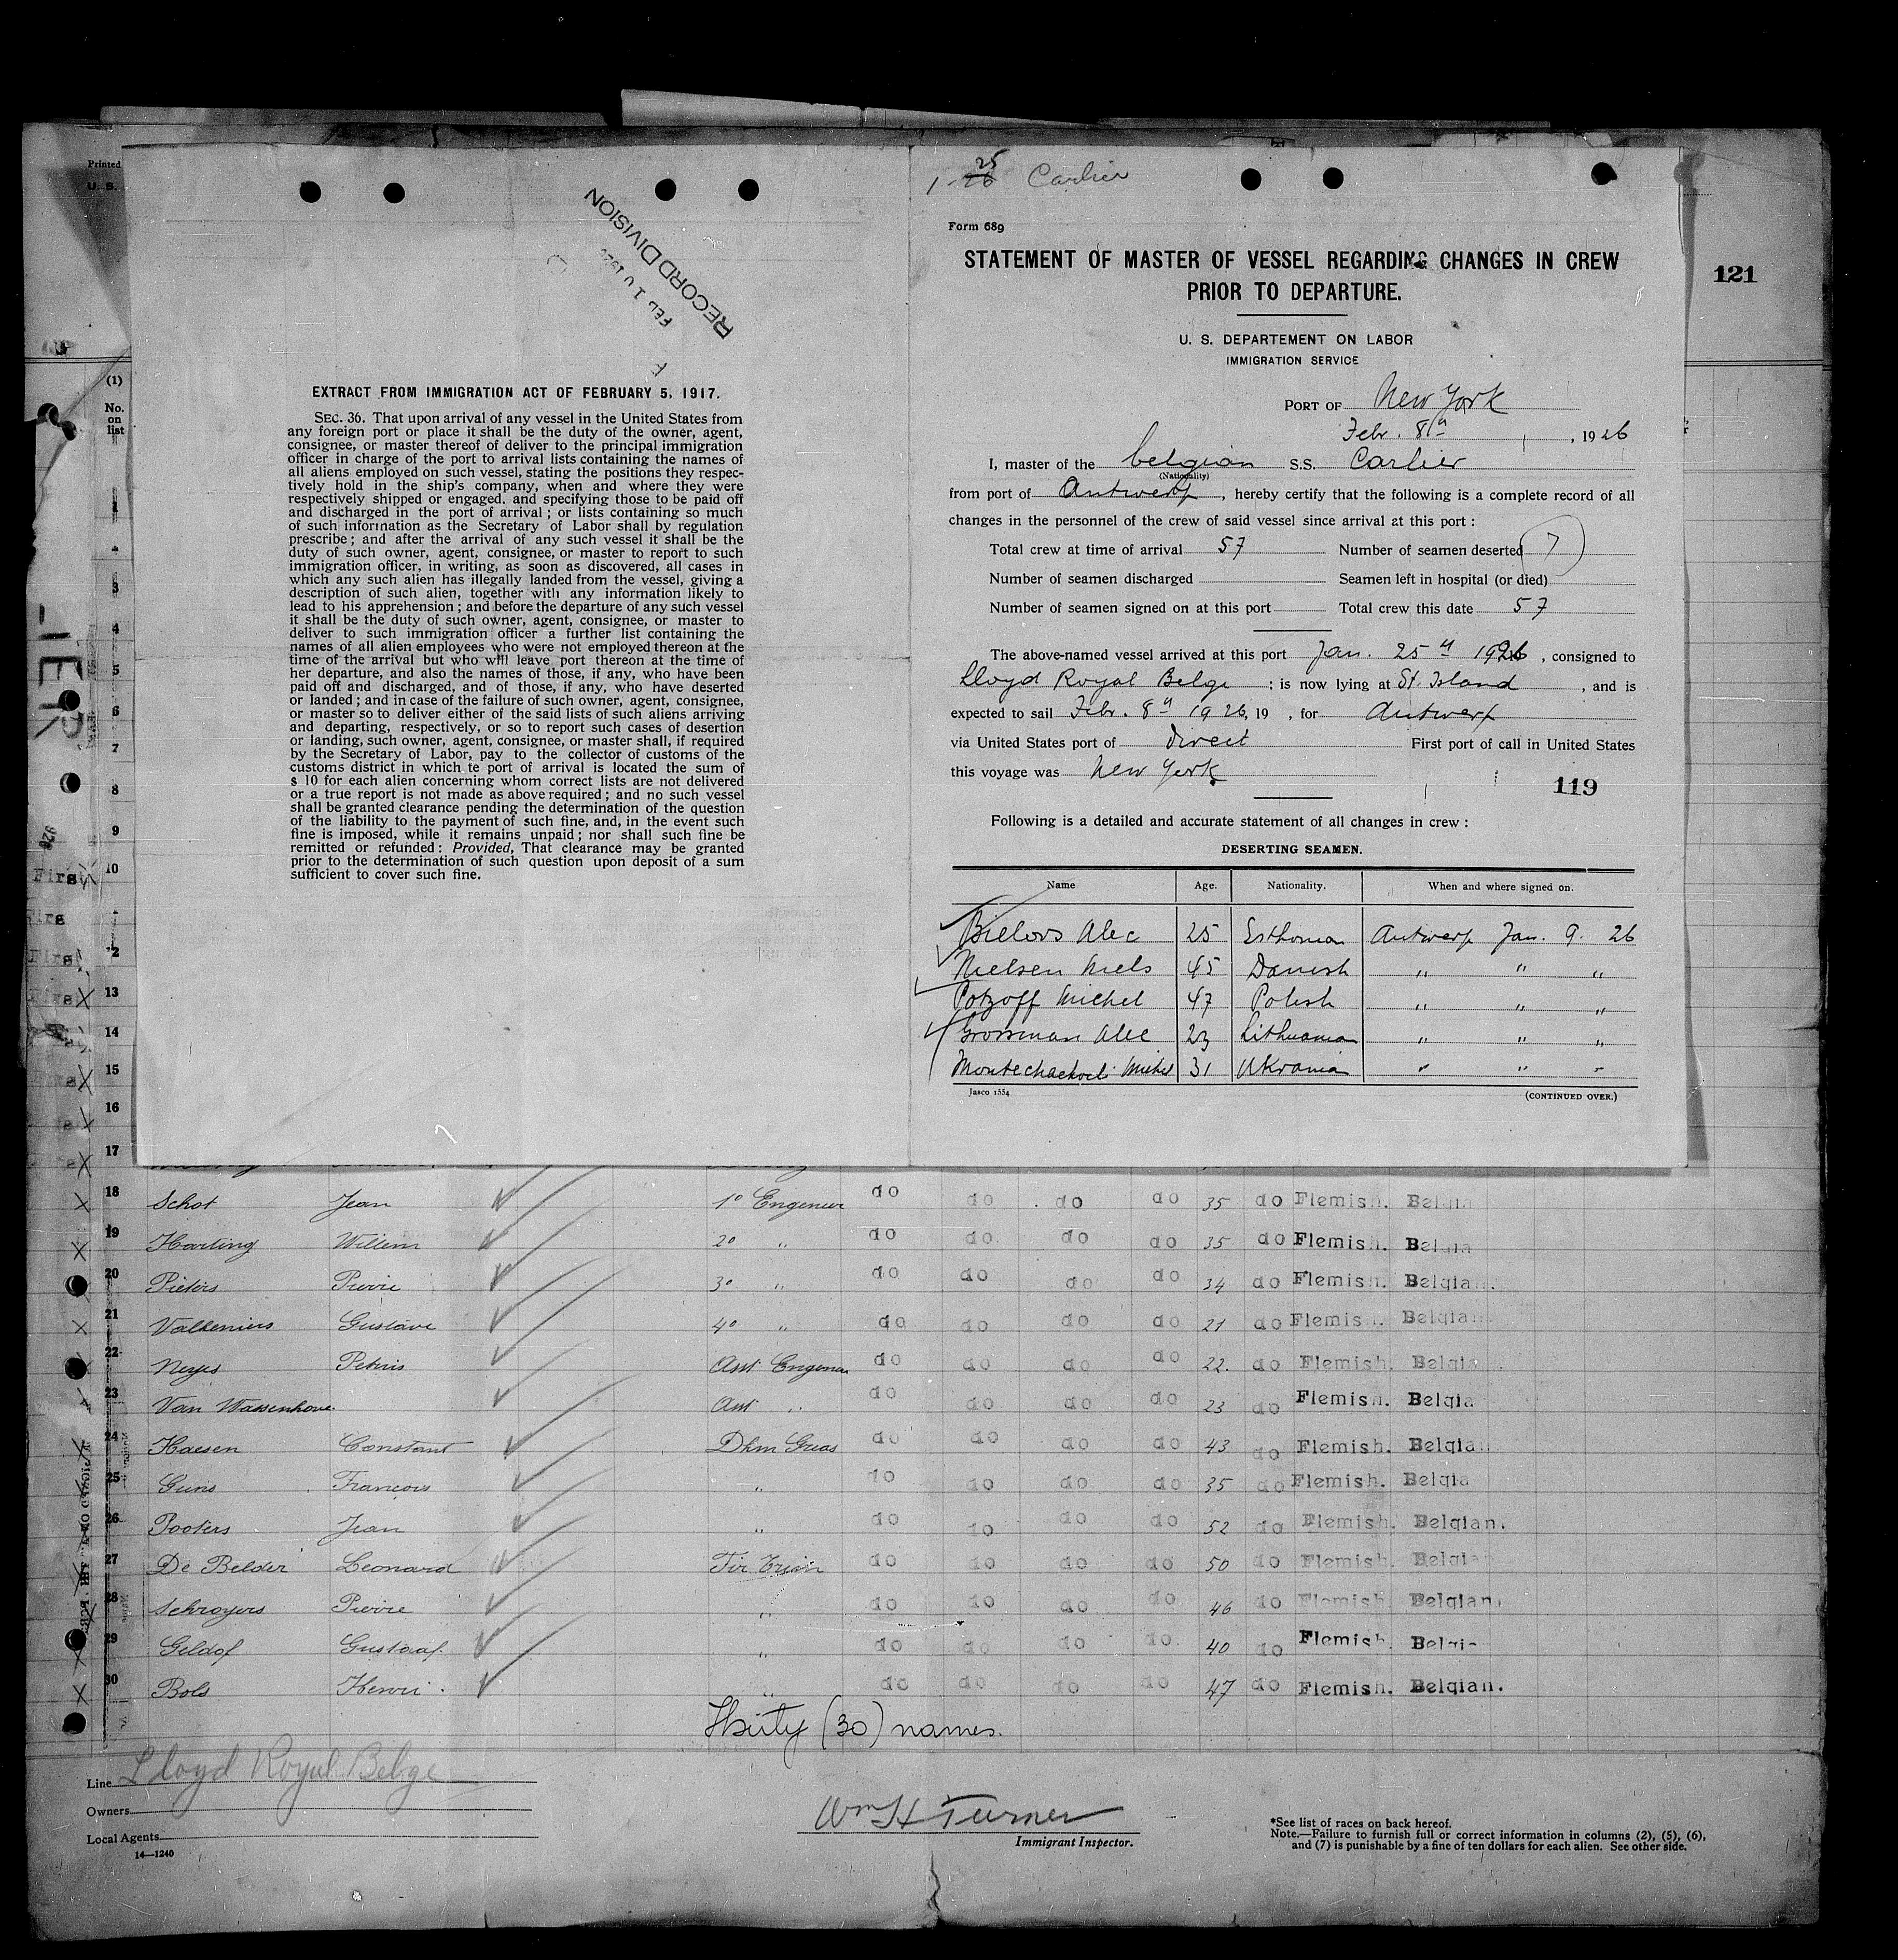 Printed
U. S.
1-26 25 Carlier
RECORD DIVISION
FEB 10 192
Form 689
STATEMENT OF MASTER OF VESSEL REGARDING CHANGES IN CREW
PRIOR TO DEPARTURE.
121
U. S. DEPARTEMENT ON LABOR
IMMIGRATION SERVICE
PORT OF New York
Febr. 8th, 1926
I, master of the belgian S.S. Carlier
(Nationality)
from port of Antwerp, hereby certify that the following is a complete record of all
changes in the personnel of the crew of said vessel since arrival at this port :
Total crew at time of arrival 57 Number of seamen deserted 7
Number of seamen discharged Seamen left in hospital (or died)
Number of seamen signed on at this port Total crew this date 57
The above-named vessel arrived at this port Jan. 25th 1926, consigned to
Lloyd Royal Belge ; is now lying at St. Island, and is
expected to sail Febr. 8th 1926, 19 , for Antwerp
via United States port of direct First port of call in United States
this voyage was New York
119
Following is a detailed and accurate statement of all changes in crew :
DESERTING SEAMEN.
Name Age. Nationality. When and where signed on.
Bielovs Alec 25 Esthonian Antwerp Jan. 9. 26
Nielsen Niels 45 Danish " " "
Potzoff Michel 47 Polish " " "
Grossman Alec 23 Lithuania " " "
Michel 31 Ukrania " " "
Jasco 1554 (CONTINUED OVER.)
EXTRACT FROM IMMIGRATION ACT OF FEBRUARY 5, 1917.
SEC. 36. That upon arrival of any vessel in the United States from
any foreign port or place it shall be the duty of the owner, agent,
consignee, or master thereof of deliver to the principal immigration
officer in charge of the port to arrival lists containing the names of
all aliens employed on such vessel, stating the positions they respec-
tively hold in the ship's company, when and where they were
respectively shipped or engaged. and specifying those to be paid off
and discharged in the port of arrival ; or lists containing so much
of such information as the Secretary of Labor shall by regulation
prescribe ; and after the arrival of any such vessel it shall be the
duty of such owner, agent, consignee, or master to report to such
immigration officer, in writing, as soon as discovered, all cases in
which any such alien has illegally landed from the vessel, giving a
description of such alien, together with any information likely to
lead to his apprehension ; and before the departure of any such vessel
it shall be the duty of such owner, agent, consignee, or master to
deliver to such immigration officer a further list containing the
names of all alien employees who were not employed thereon at the
time of the arrival but who will leave port thereon at the time of
her departure, and also the names of those, if any, who have been
paid off and discharged, and of those, if any, who have deserted
or landed ; and in case of the failure of such owner, agent, consignee,
or master so to deliver either of the said lists of such aliens arriving
and departing, respectively, or so to report such cases of desertion
or landing, such owner, agent, consignee, or master shall, if required
by the Secretary of Labor, pay to the collector of customs of the
customs district in which te port of arrival is located the sum of
$ 10 for each alien concerning whom correct lists are not delivered
or a true report is not made as above required ; and no such vessel
shall be granted clearance pending the determination of the question
of the liability to the payment of such fine, and, in the event such
fine is imposed, while it remains unpaid ; nor shall such fine be
remitted or refunded : Provided, That clearance may be granted
prior to the determination of such question upon deposit of a sum
sufficient to cover such fine.
(1)
No.
on
list
3
4
5
6
7
8
9
10
12
13
14
15
16
17
18 Schot Jean 1° Engeneer do do do do 35 do Flemish. Belgia
19 Harting Willem 2° " do do do do 35 do Flemish. Belgia
20 Pieters Pierre 3° " do do do do 34 do Flemish. Belgian.
21 Valkeniers Gustave 4° " do do do do 21 do Flemish. Belgian
22 Neyes Petrus Asst Engeneer do do do do 22. do Flemish. Belgia
23 Van Wassenhove. Asst " do do do do 23 do Flemish. Belgia
24 Haesen Constant Dkm Greas do do do do 43 do Flemish. Belgian
25 Guns François " do do do do 35 do Flemish. Belgia
26 Pooters Jean " do do do do 52 do Flemish. Belgian.
27 De Belder Leonard do do do do 50 do Flemish. Belgian
28 Schroyers Pierre " do do do do 46 do Flemish. Belgian.
29 Geldof Gustaaf. " do do do do 40 do Flemish. Belgia
30 Bols Henri. " do do do do 47 do Flemish. Belgian.
Thirty (30) names.
Line Lloyd Royal Belge
Owners
Local Agents
14—1240
Wm H Turner
Immigrant Inspector.
*See list of races on back hereof.
Note.—Failure to furnish full or correct information in columns (2), (5), (6),
and (7) is punishable by a fine of ten dollars for each alien. See other side.